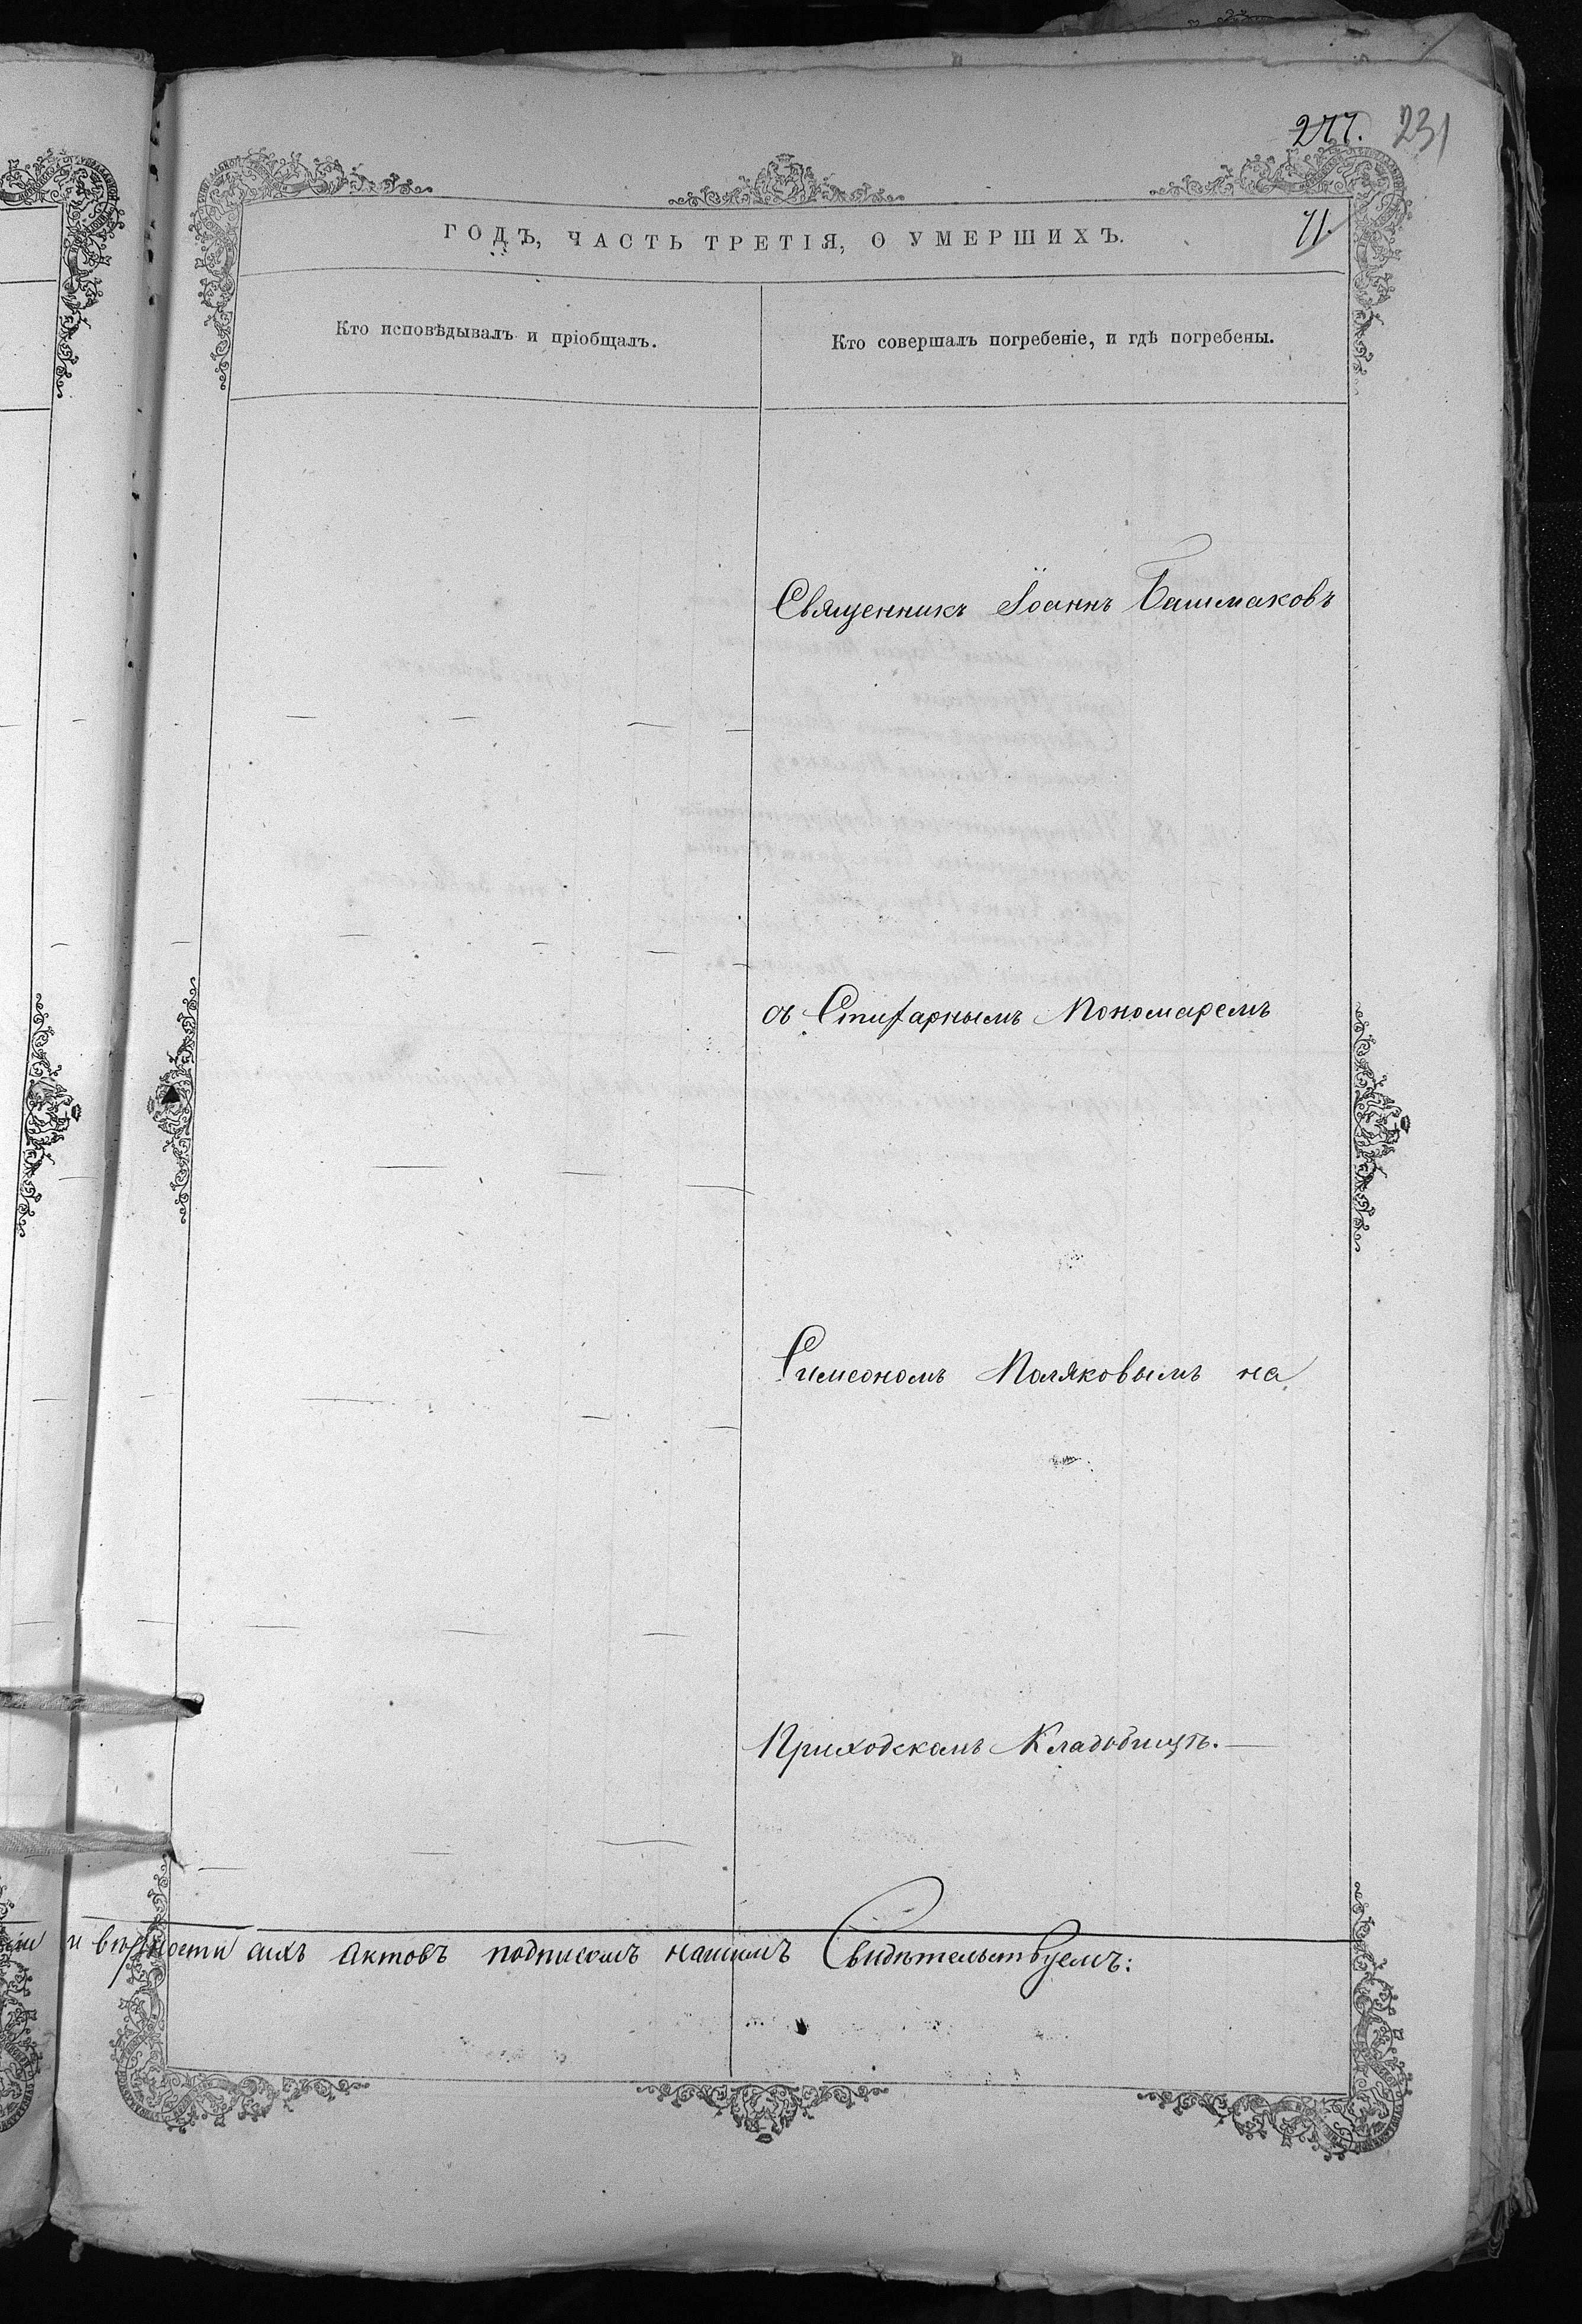 277. 231
ГОДЪ, ЧАСТЬ ТРЕТІЯ, О УМЕРШИХЪ.
71.
Кто исповѣдывалъ и пріобщалъ.
Кто совершалъ погребеніе, и гдѣ погребены.
Священникъ Іоаннъ Башмаковъ
съ Стихарнымъ Пономаремъ
Симеономъ Поляковымъ на
Приходскомъ Кладбищѣ.—
и вѣрности сихъ актовъ подписомъ нашимъ Свидѣтельствуемъ: